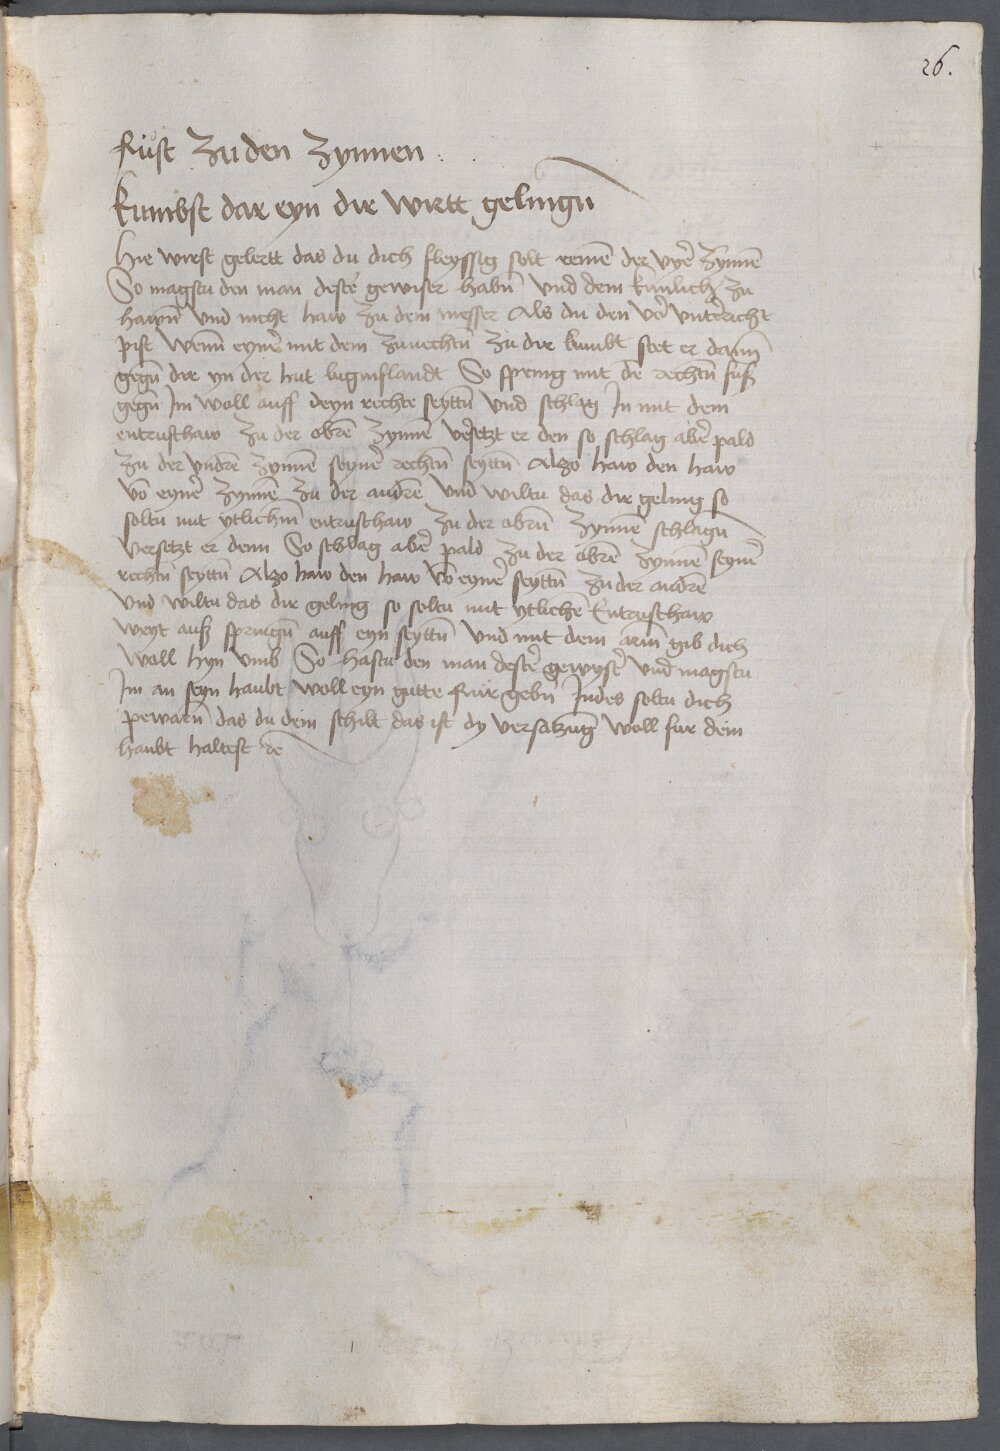 26.
Rüst Zu den Zynnen
kumbst dar eyn dir wirtt gelingn̄
Hie wirst gelertt das du dich fleyssig solt remē der vyr̄ Zynnē
So magstu den man dester̄ gewiser habn̄ vnd dem kunlich zu
hawn̄ vnd nicht haw zu dem messer Als du den vor̄ vnterricht
pist Wenn eyner̄ mit dem zuuechtn̄ zu dir kumbt stet er dann̄
gegn̄ dir yn der hut luginslandt So spring mit dē rechtn̄ fuß
gegn̄ Im woll auff deyn rechte seyttn̄ vnd schlag In mit dem
entrusthaw zu der obrē Zynnē v̄setzt er den so schlag aber̄ pald
zu der vndrē zynnē seyner̄ rechtn̄ seyttn̄ Alzo haw den haw
vō eyner̄ Zynnē zu der andrē vnd wiltu das dir geling so
soltu mit ytlichm̄ entrusthaw zu der obrn̄ Zynnē schlagn̄
Versetzt er denn So schlag aber̄ pald zu der obrē Zynnē seyner̄
rechtn̄ seyttn̄ Alzo haw den haw vō eyner̄ seyttn̄ zu der andrē
vnd wiltu das dir geling so soltu mit ytlichē Entrusthaw
weyt auß springn̄ auff eyn seyttn̄ vnd mit dem arm̄ gib dich
woll hyn vmb So hastu den man dester̄ gewyser̄ vnd magstu
Im an seyn haubt woll eyn gutte Rür gebn̄ Indes soltu dich
pewarn̄ das du dein schilt das ist dy versatzūg woll fur dein
haubt haltest ꝛc